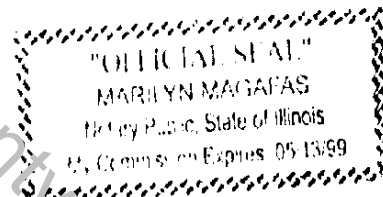 "OFFICIAL SEAL"
MARILYN MAGAFAS
Notary Public, State of Illinois
My Commission Expires 05/13/99